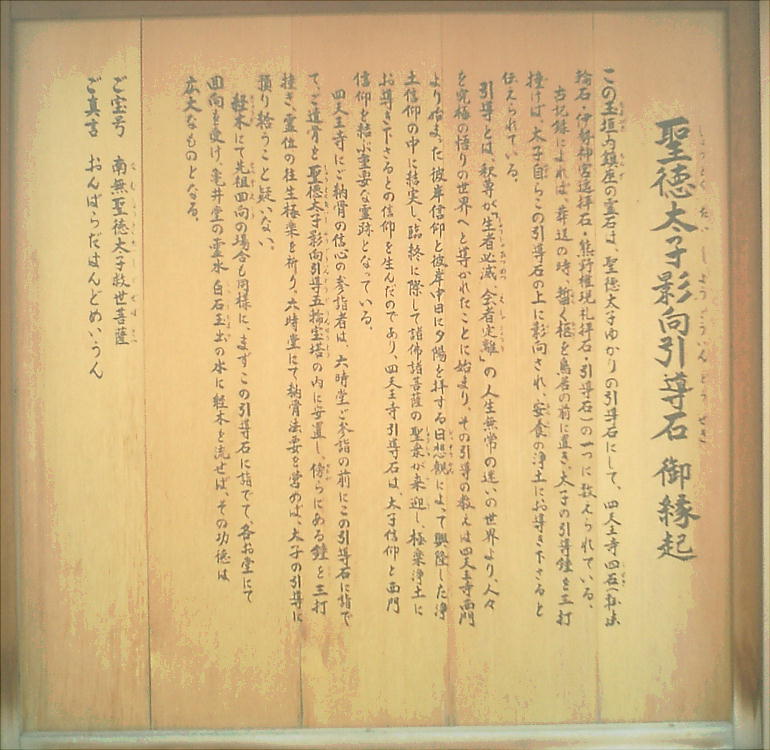 聖徳太子影向引導石 御縁起
この玉垣内鎮座の霊石は、聖徳太子ゆかりの引導石にして、四天王寺四石(転法
輪石・伊勢神宮遥拝石・熊野権現礼拝石・引導石)の一つに数えられている。
古記録によれば、葬送の時、暫く柩を鳥居の前に置き、太子の引導鐘を三打
撞けば、太子自らこの引導石の上に影向され、安養の浄土にお導き下さると
伝えられている。
引導とは、釈尊が「生者必滅、会者定離」の人生無常の迷いの世界より、人々
を究極の悟りの世界へと導かれたことに始まり、その引導の教えは四天王寺西門
より始まった彼岸信仰と彼岸中日に夕陽を拝する日想観によって興隆した浄
土信仰の中に結実し、臨終に際して諸佛諸菩薩の聖衆が来迎し、極楽浄土に
お導き下さるとの信仰を生んだのであり、四天王寺引導石は、太子信仰と西門
信仰を結ぶ重要な霊跡となっている。
四天王寺にご納骨の信心の参詣者は、六時堂ご参詣の前にこの引導石に詣で
て、ご遺骨を聖徳太子影向引導五輪宝塔の内に安置し、傍らにある鐘を三打
撞き、霊位の往生極楽を祈り、六時堂にて納骨法要を営めば、太子の引導に
預り給うこと疑いない。
経木にて先祖回向の場合も同様に、まずこの引導石に詣でて、各お堂にて
回向を受け、亀井堂の霊水 白石玉出の水に経木を流せば、その功徳は
広大なものとなる。
ご宝号 南無聖徳太子救世菩薩
ご真言 おんばらだはんどめいうん